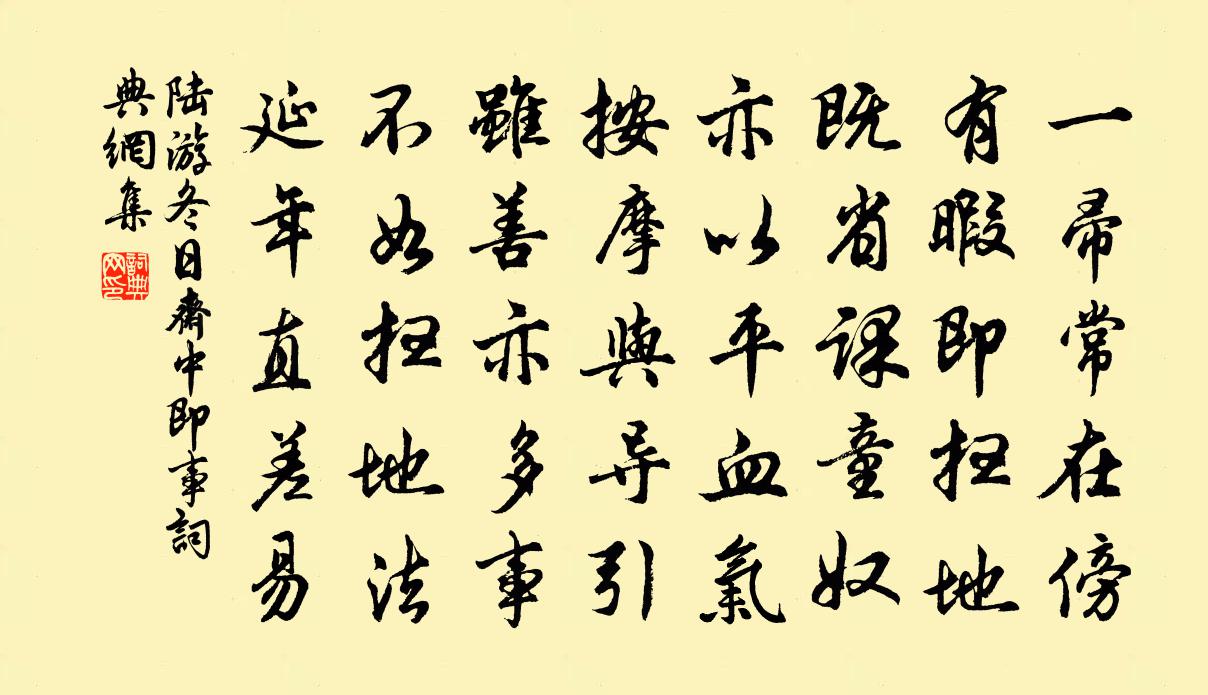 一帚常在傍
有暇即扫地
既省課童奴
亦以平血氣
按摩與导引
雖善亦多事
不如扫地法
延年直差易
陆游冬日齋中即事詞
典網集
詞典
网印